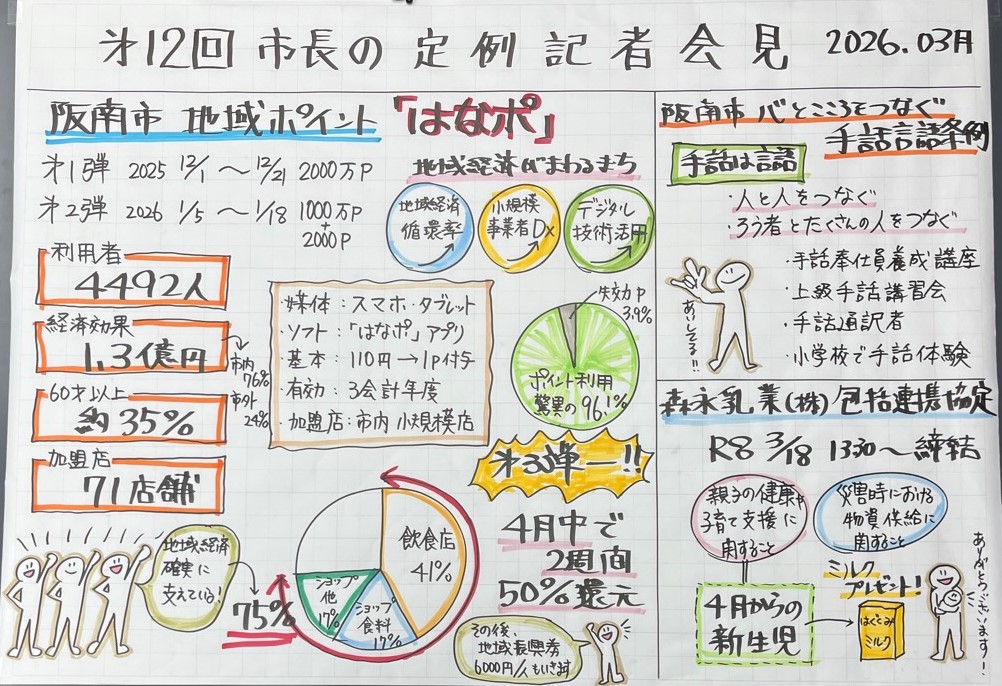 第12回 市長の定例記者会見 2026.03月
阪南市 地域ポイント「はなポ」
第1弾 2025 12/1 〜 12/21 2000万P
第2弾 2026 1/5 〜 1/18 1000万P
+
2000P
利用者
4492人
経済効果
1.3億円
市内
76%
市外
24%
60才以上
約35%
加盟店
71店舗
地域経済がまわるまち
地域経済
循環率
小規模
事業者DX
デジタル
技術活用
・媒体:スマホ・タブレット
・ソフト:「はなポ」アプリ
・基本:110円→1P付与
・有効:3会計年度
・加盟店:市内 小規模店
失効P
3.9%
ポイント利用
驚異の96.1%
地域経済
確実に
支えている!
75%
飲食店
41%
ショップ
他
17%
ショップ
食料
17%
第3弾ー!!
4月中で
2週間
50%還元
その後、
地域振興券
6000円/人もいきます
阪南市 心とこころをつなぐ
手話言語条例
手話は言語
・人と人をつなぐ
・ろう者とたくさんの人をつなぐ
・手話奉仕員養成講座
・上級手話講習会
・手話通訳者
・小学校で手話体験
あいしてる!!
森永乳業(株)包括連携協定
R8 3/18 13:30〜 締結
親子の健康や
子育て支援に
関すること
災害時における
物資供給に
関すること
4月からの
新生児
ミルク
プレゼント!
はぐくみ
ミルク
ありがとうございます!